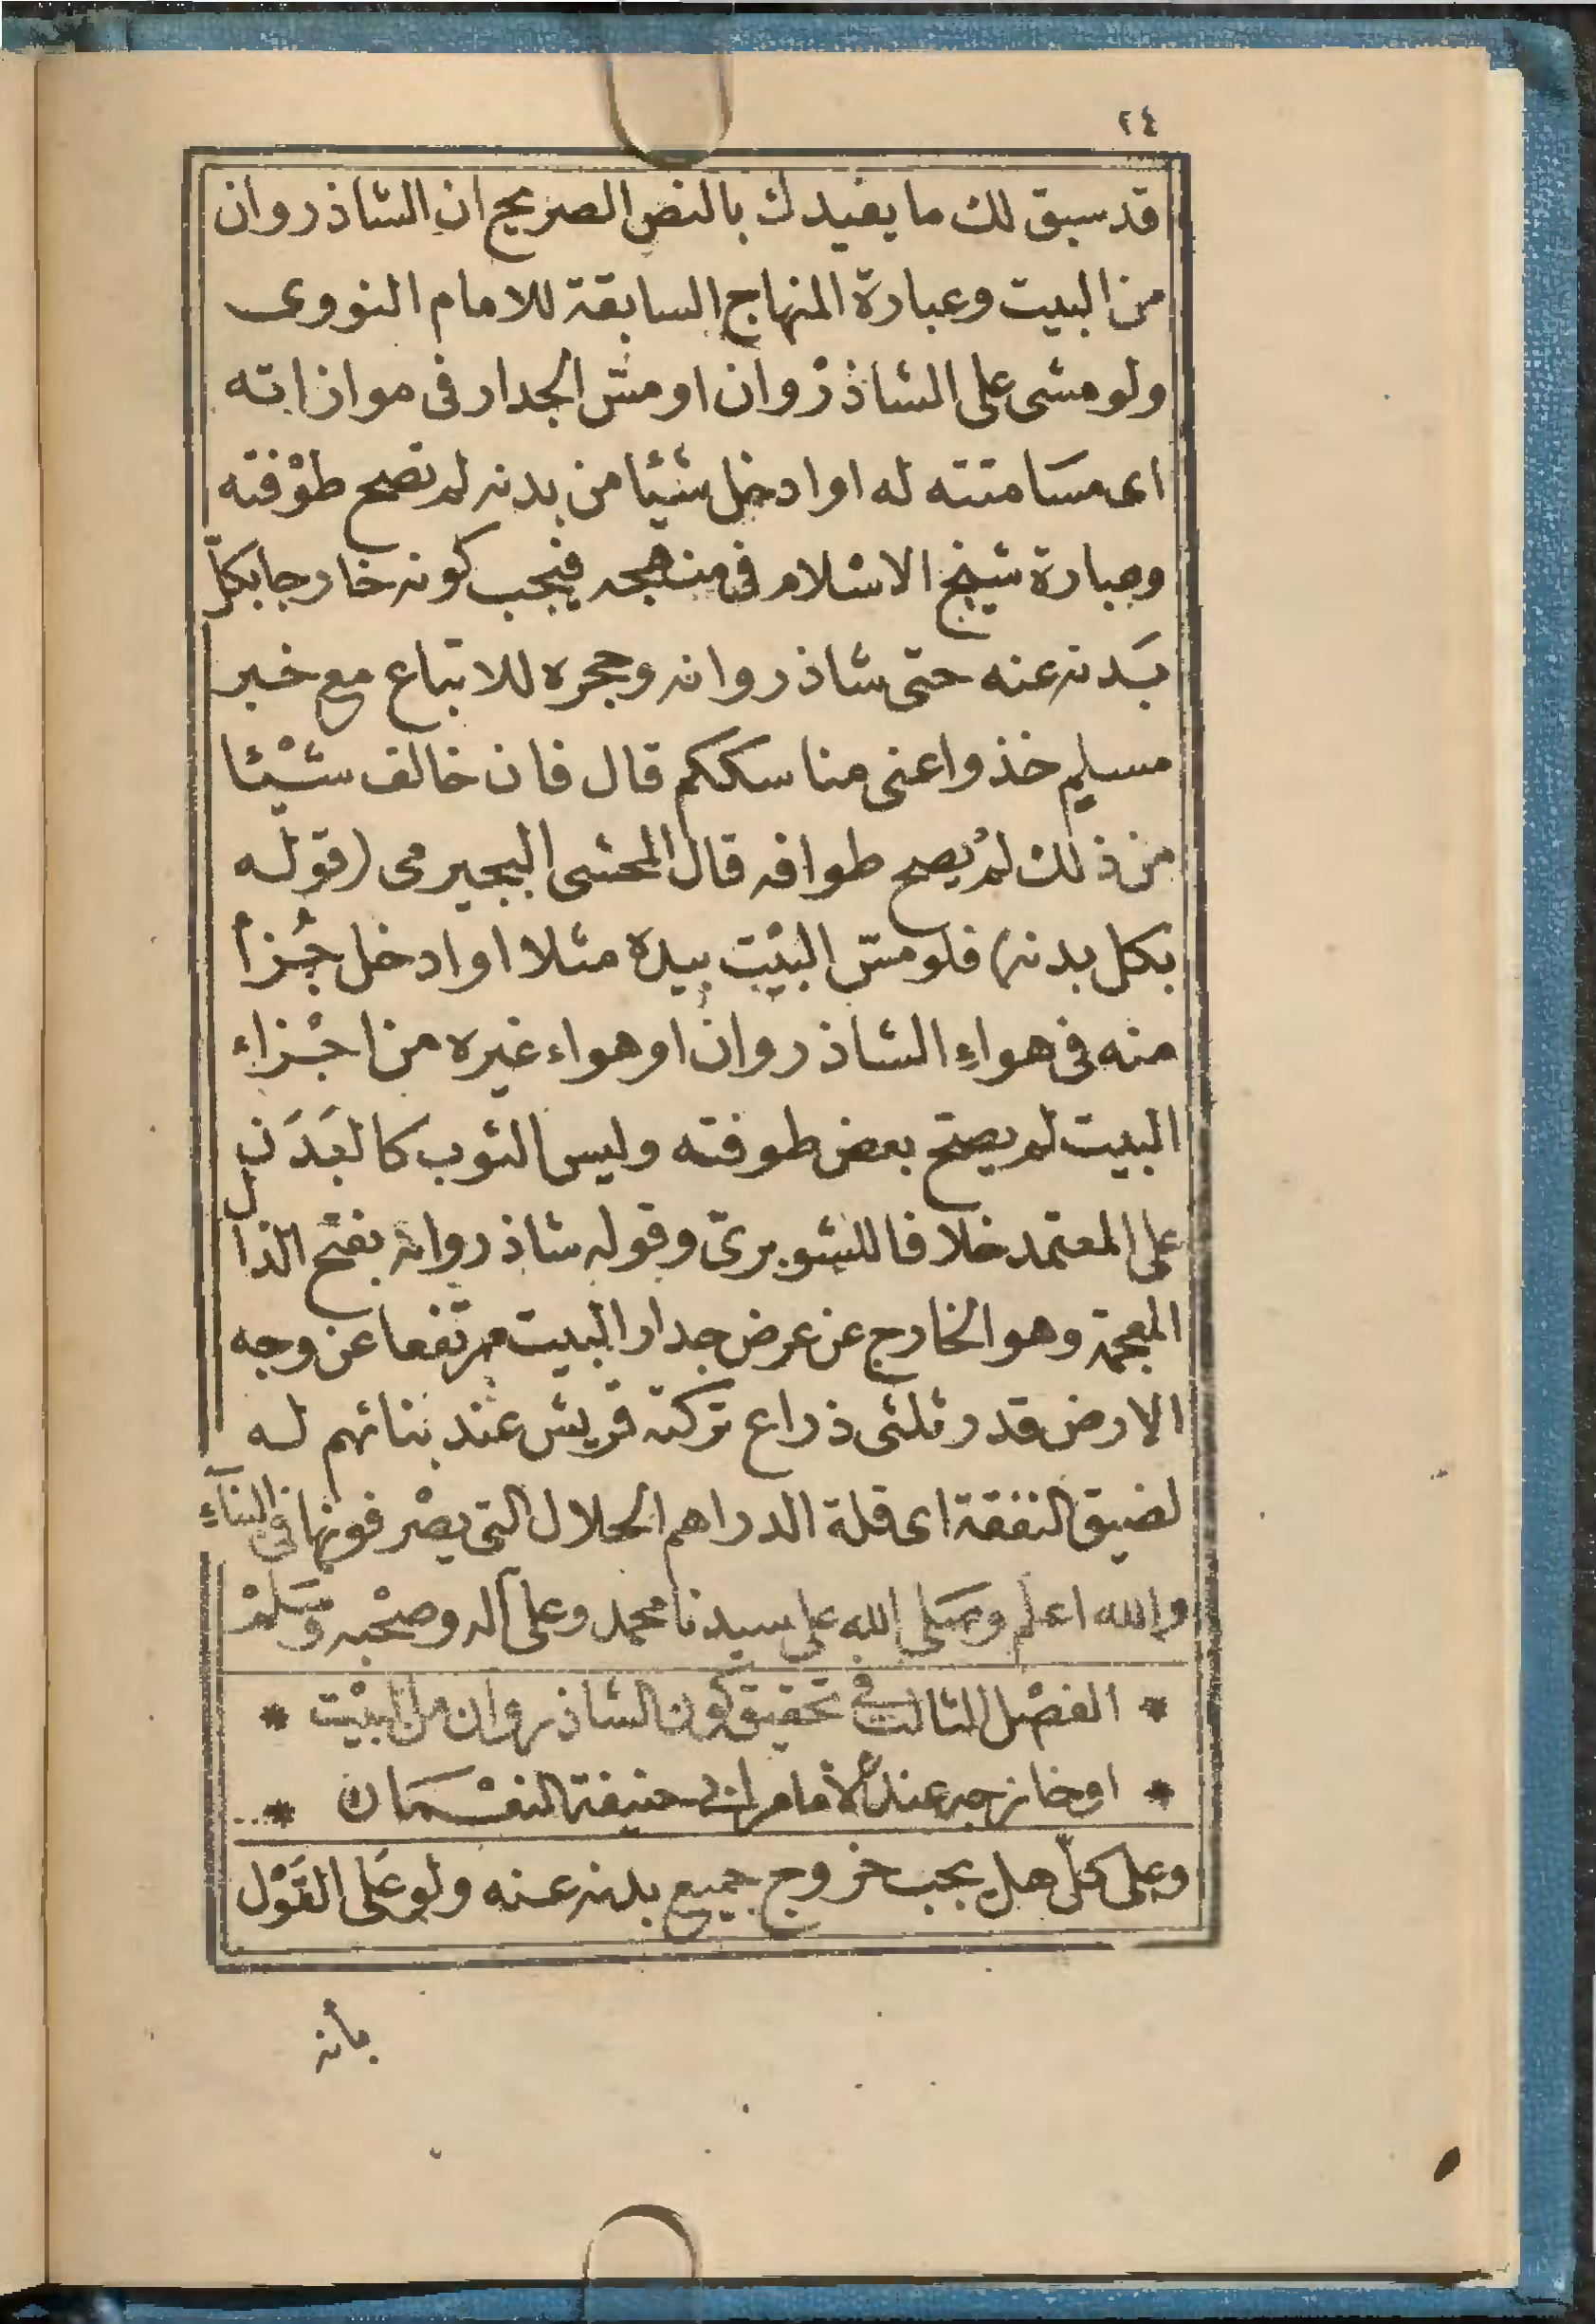 ٢٤
قد سبق لك ما يفيدك بالنص الصريح ان الشاذروان
من البيت وعبارة المنهاج السابقة للامام النووى
ولو مشى على الشاذرْوان او مسّ الجدار فى موازاته
اى مسَامتته له او ادخل شيْئا من بدنه لم تصح طوْفته
وعبارة شيخ الاسْلام فى منهجه فيجب كونه خارجا بكلّ
بَدنه عنه حتى شاذروانه وحجره للاتباع مع خبر
مسلم خذوا عنى مناسككم قال فان خالف شيْئا
من ذلك لمْ يصح طوافه قال المحشى البجيرمى (قوله
بكل بدنه) فلو مسّ البيْت بيده مثلا او ادخل جُزأ
منه فى هواءِ الشاذروان او هواء غيره من اجْزاء
البيت لم يصحّ بعض طوفته وليس الثوب كالبَدَن
على المعتمد خلافا للشوبرىّ وقوله شاذروانه بفتح الذال
المعجمة وهو الخارج عن عرض جدار البيت مرتفعا عن وجه
الارض قدر ثلثى ذراع تركته قريش عند بنائهم له
لضيق النفقة اى قلة الدراهم الحلال التى يصْرفونها فى البنآءِ
والله اعلم وصَلى الله على سيدنا محمد وعلى آله وصحْبه وسَلمْ
* الفصْل الثالث فى تحقيق كون الشاذروان من البيْت *
* او خارجه عند الأمام ابى حنيفة النعْمَان *
وعلى كلّ هل يجب خروج جميع بدنه عنه ولو عَلى القَوْل
بأنه